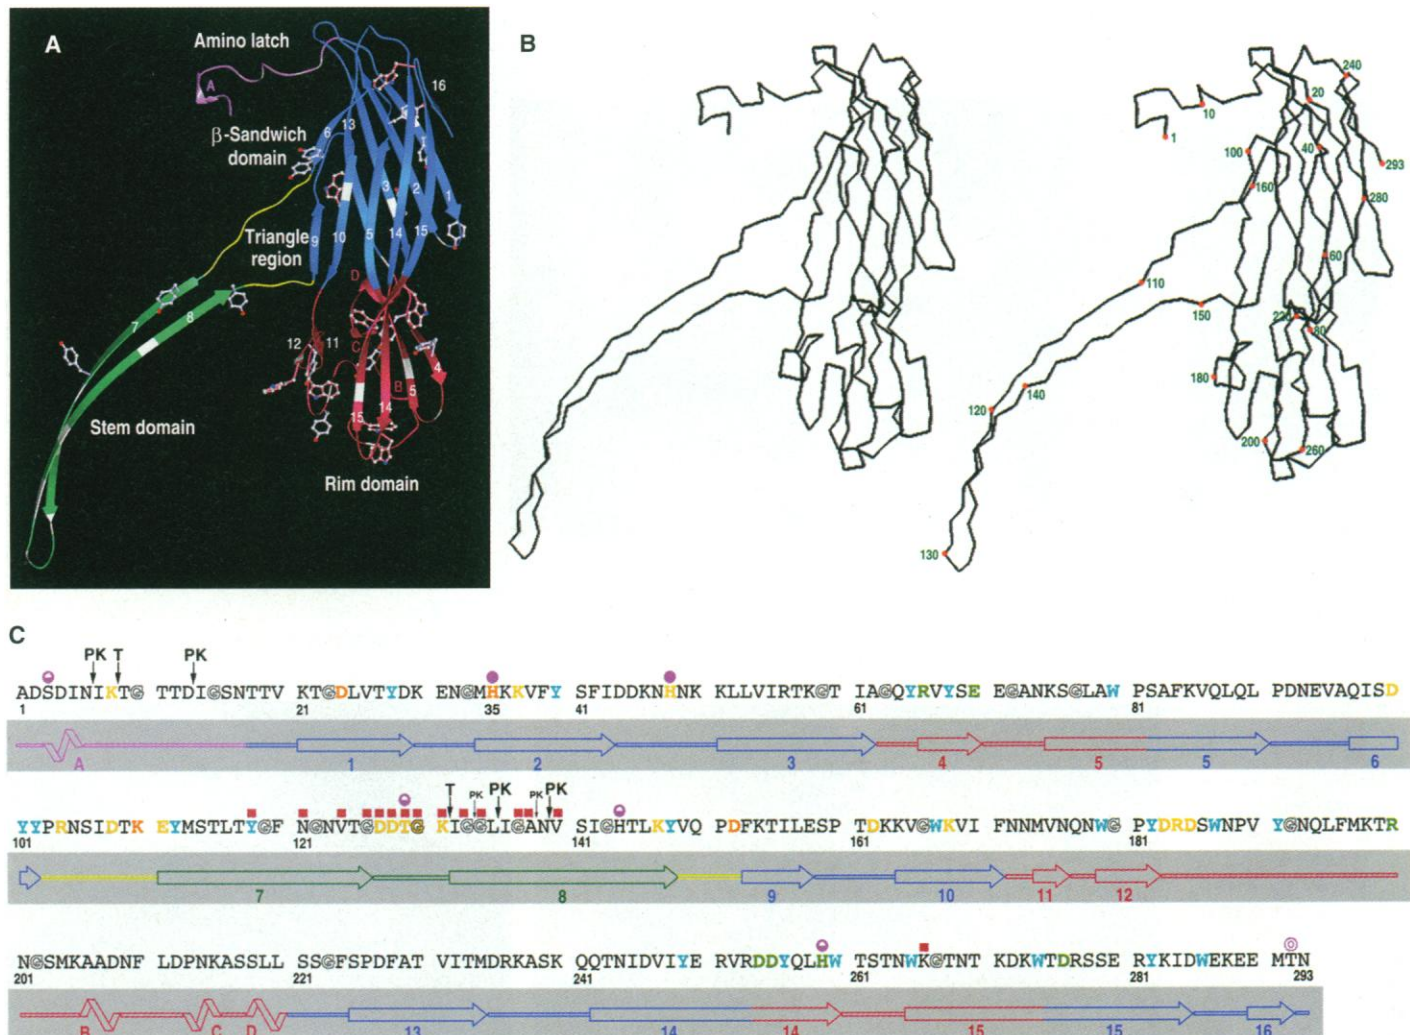 A
Amino latch
A
16
6
13
β-Sandwich
domain
3
2
1
Triangle
region
9
10
5
14
15
D
7
8
12
11
C
B
4
5
15
14
Stem domain
Rim domain
B
240
20
10
1
100
40
293
160
280
60
110
150
220
80
180
120
140
200
260
130
C
PK T PK
ADSDINIKTG TTDIGSNTTV KTGDLVTYDK ENGMHKKVFY SFIDDKNHNK KLLVIRTKGT IAGQYRVYSE EGANKSGLAW PSAFKVQLQL PDNEVAQISD
1 21 35 41 61 81
A 1 2 3 4 5 5 6
T PK PK PK PK
YYPRNSIDTK EYMSTLTYGF NGNVTGDDTG KIGGLIGANV SIGHTLKYVQ PDFKTILESP TDKKVGWKVI FNNMVNQNWG PYDRDSWNPV YGNQLFMKTR
101 121 141 161 181
7 8 9 10 11 12
NGSMKAADNF LDPNKASSLL SSGFSPDFAT VITMDRKASK QQTNIDVIYE RVRDDYQLHW TSTNWKGTNT KDKWTDRSSE RYKIDWEKEE MTN
201 221 241 261 281 293
B C D 13 14 14 15 15 16